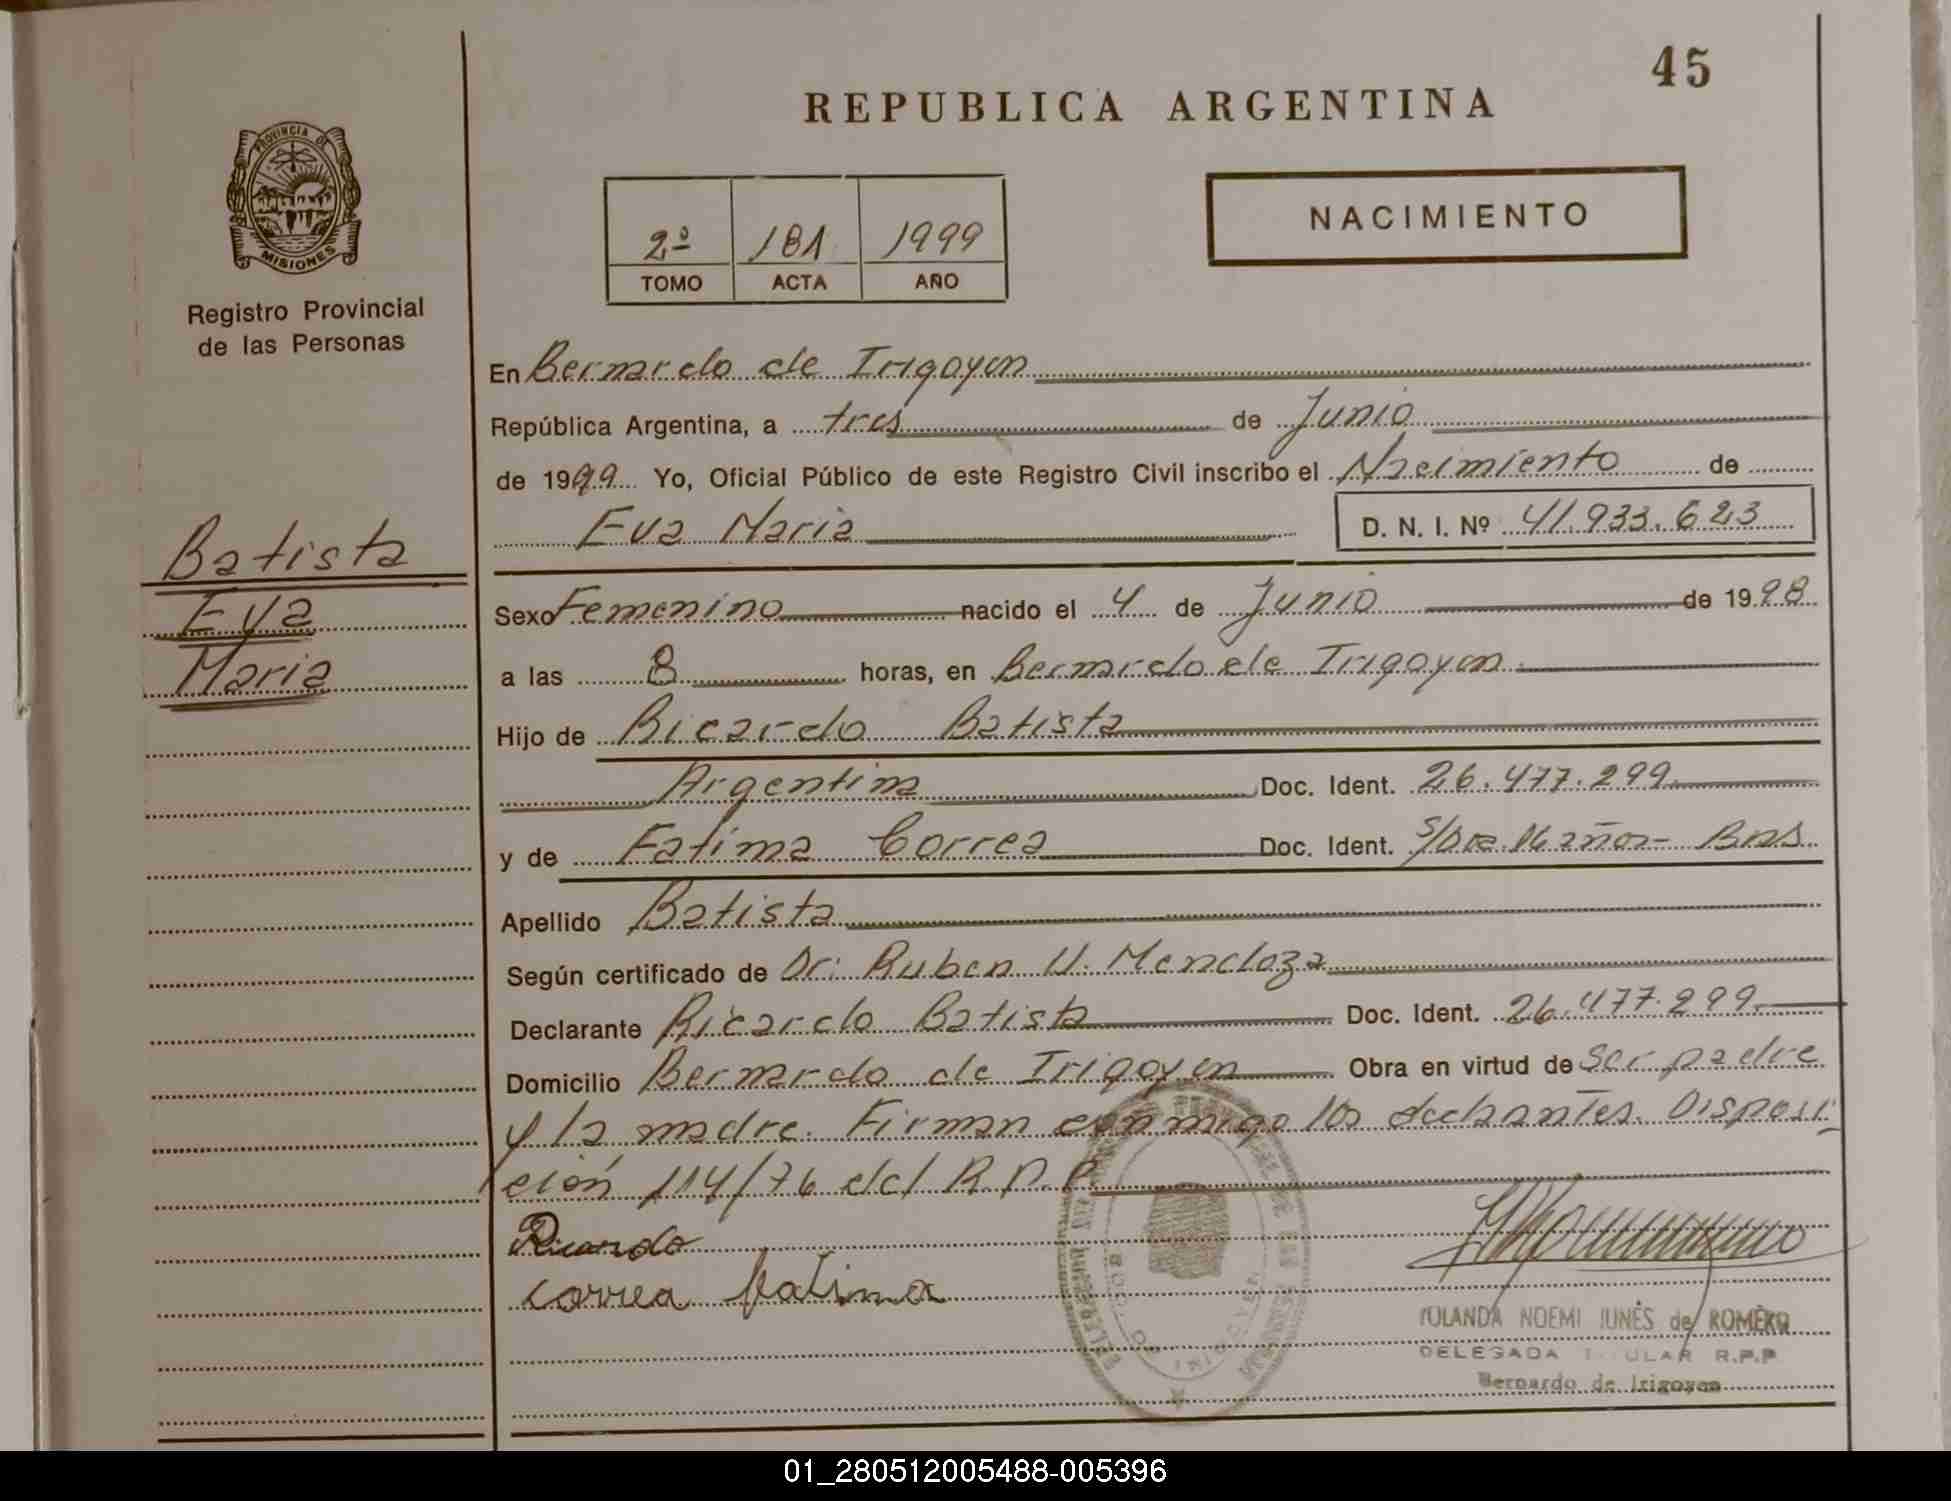 45
REPUBLICA ARGENTINA
PROVINCIA DE
MISIONES
NACIMIENTO
2º 181 1999
TOMO ACTA AÑO
Registro Provincial
de las Personas
En Bernardo de Irigoyen
República Argentina, a tres de Junio
de 1999 Yo, Oficial Público de este Registro Civil inscribo el Nacimiento de
Eva Maria D. N. I. Nº 41.933.623
Batista
Eva
Maria
Sexo Femenino nacido el 4 de Junio de 1998
a las 8 horas, en Bernardo de Irigoyen
Hijo de Ricardo Batista
Argentina Doc. Ident. 26.477.299
y de Fatima Correa Doc. Ident. Bras.
Apellido Batista
Según certificado de Dr. Ruben U. Mendoza
Declarante Ricardo Batista Doc. Ident. 26.477.299
Domicilio Bernardo de Irigoyen Obra en virtud de ser padre
y la madre. Firman conmigo los declarantes. Disposi-
ción 114/76 del R.P.P.
Ricardo
Correa Fatima
YOLANDA NOEMI JUNÉS de ROMERO
DELEGADA TITULAR R.P.P
Bernardo de Irigoyen
01_280512005488-005396